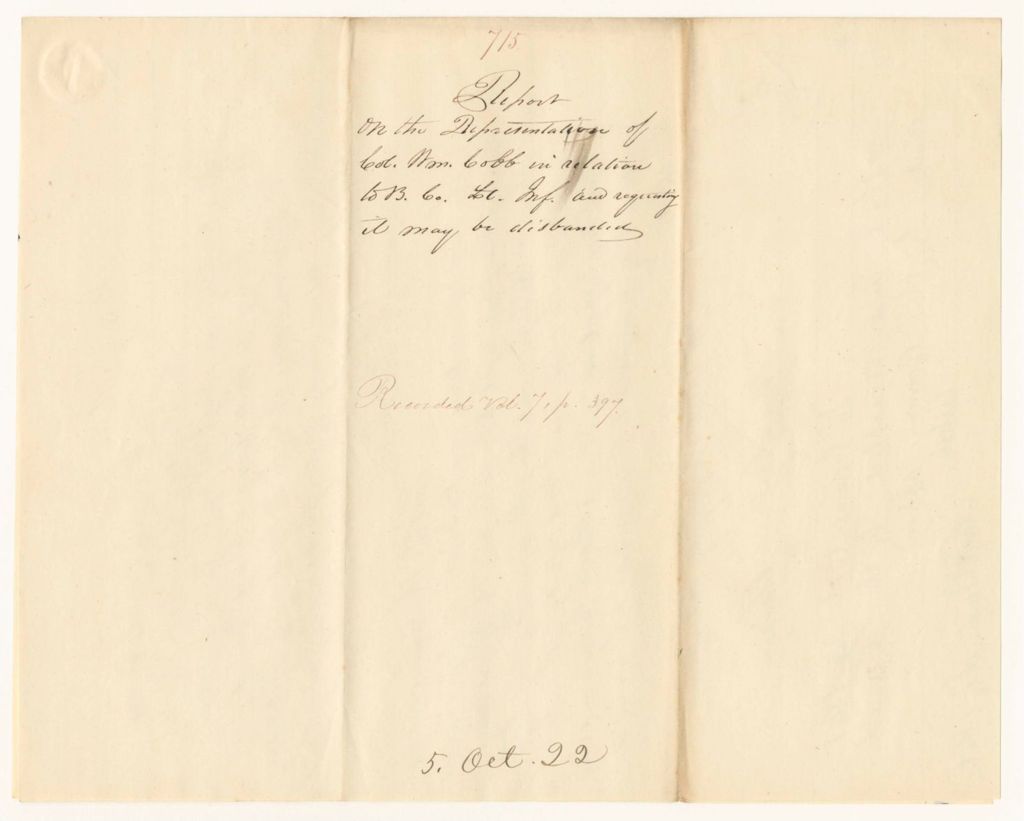 715
Report
On the Representation of
Col. Wm. Cobb in relation
to B. Co. Lt. Inf. and requesting
it may be disbanded
Recorded Vol. 7, p. 397.
5. Oct. 22